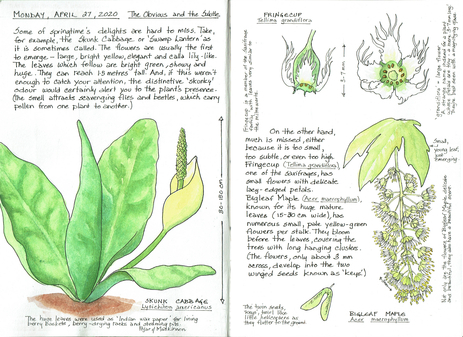 MONDAY, APRIL 27, 2020 The Obvious and the Subtle
Some of springtime's delights are hard to miss. Take,
for example, the Skunk Cabbage or 'Swamp Lantern' as
it is sometimes called. The flowers are usually the first
to emerge – large, bright yellow, elegant and calla lily-like.
The leaves which follow are bright green, showy and
huge. They can reach 1.5 metres tall. And, if this weren't
enough to catch your attention, the distinctive 'skunky'
odour would certainly alert you to the plant's presence.
(The smell attracts scavenging flies and beetles, which carry
pollen from one plant to another.)
SKUNK CABBAGE
Lysichiton americanus
The huge leaves were used as 'Indian wax paper' for lining
berry baskets, berry-drying racks and steaming pits.
Pojar / MacKinnon
FRINGECUP
Tellima grandiflora
On the other hand,
much is missed, either
because it is too small,
too subtle, or even too high.
Fringecup (Tellima grandiflora),
one of the saxifrages, has
small flowers with delicate
lacy-edged petals.
Bigleaf Maple (Acer macrophyllum),
known for its huge mature
leaves (15-30 cm wide), has
numerous small, pale yellow-green
flowers per stalk. They bloom
before the leaves, covering the
trees with long hanging clusters.
(The flowers, only about 3 mm
across, develop into the two
winged seeds known as 'keys'.)
Small,
young leaf,
just
emerging.
The twin seeds,
'keys', twirl like
little helicopters as
they flutter to the ground.
BIGLEAF MAPLE
Acer macrophyllum